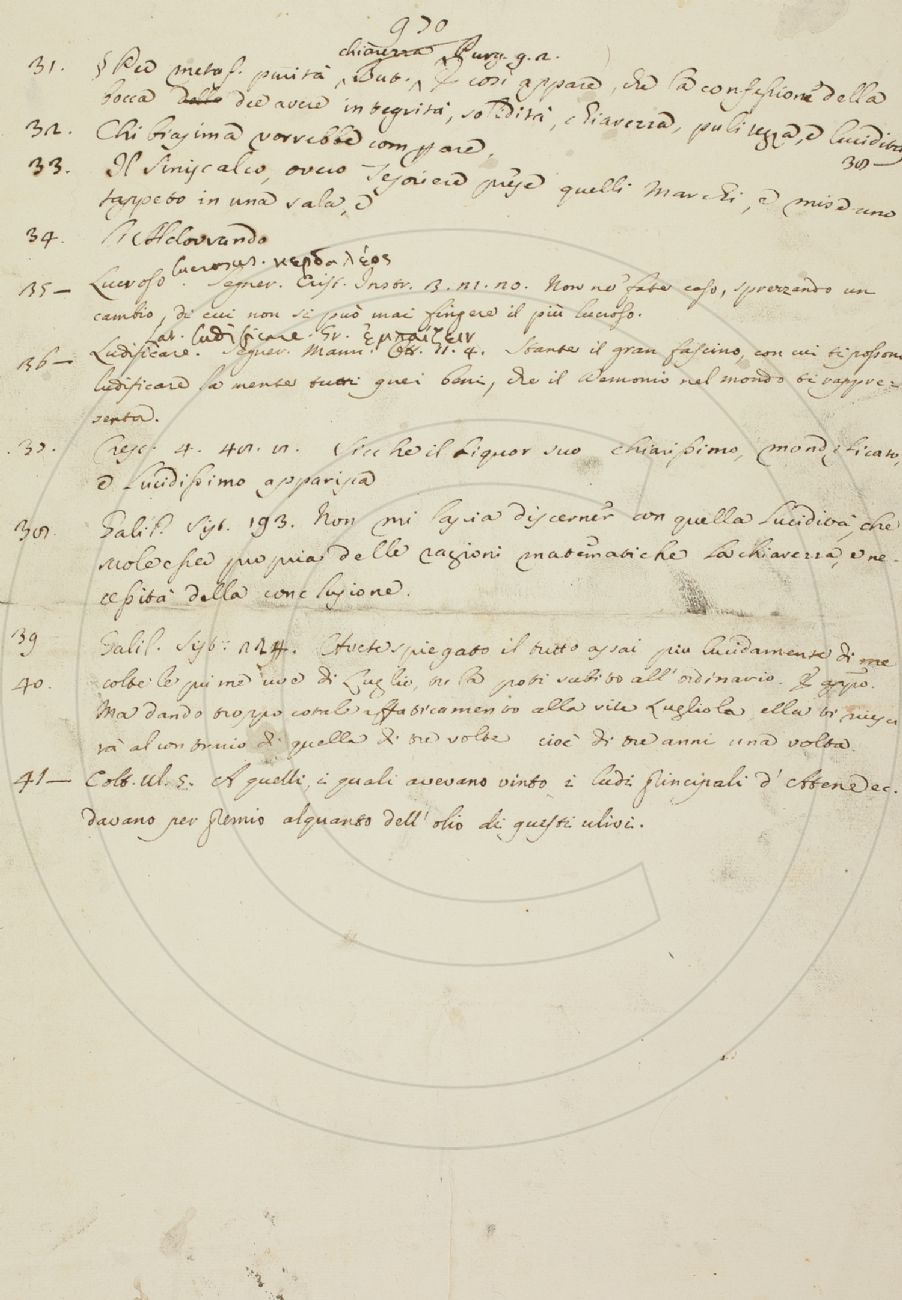 970
31. § Per metaf. purità chiarezza But. Purg. 9. 2. E così appare, che la confessione della
bocca dello dee avere integrità, solidità, chiarezza, pulitezza, e lucidità
32. Chi biasima vorrebbe comprare
38 —
33. Il Siniscalco, ovvero Tesoriere prese quelli Marchi, e mise uno
tappeto in una sala, e
34.
lucrosus. κερδαλέος
35 — Lucroso. Segner. Crist. Instr. 3. 21. 20. Non ne fate caso, sprezzando un
cambio, di cui non si può mai fingere il più lucroso.
Lat. ludificare. Gr. ἐμπαίζειν
36 — Ludificare. Segner. Mann. Ott. 11. 4. Stante il gran fascino, con cui ti possono
ludificare la mente tutti quei beni, che il Demonio nel mondo ti rappre-
senta.
37. Cresc. 4. 42. 2. Sicche il liquor suo chiarissimo, mondificato,
e lucidissimo apparisca
38 Galil. Sist. 193. Non mi lascia discerner con quella lucidità, che
suole esser propria delle ragioni matematiche la chiarezza, e ne-
cessità della conclusione.
39 Galil. Sist. 224. Avete spiegato il tutto assai piu lucidamente di me
40. colte le prime uve di Luglio, tu la poti subito all'ordinario. E appo.
Ma dando troppo cotale affaticamento alla vite Lugliola, ella ti riusci
rà al contrario di quella di tre volte cioè di tre anni una volta.
41 — Colt. Ul. 5. A quelli, i quali avevano vinto i ludi principali d'Atene
davano per premio alquanto dell'olio di questi ulivi.